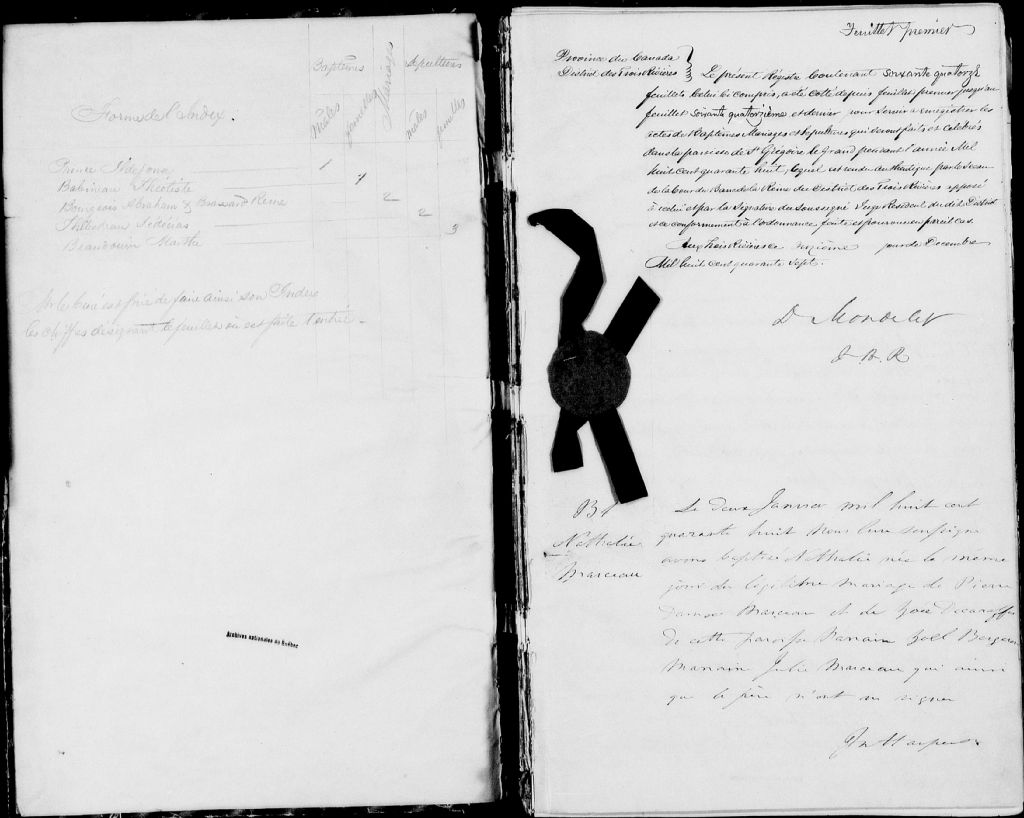 Baptêmes Mariages Sepultures
Males femelles males femelles
Forme de l'Index.
Prince 1
Babineau Théotiste 1
Bourgeois Abraham & Brassard Reine 2
2
Beaudouin Marthe 3
Mr le Curé est prié de faire ainsi son Index
les chiffres désignant le feuillet où est faite l'entrée.
Archives nationales du Québec
Feuillet premier
Province du Canada
District des Trois Rivières
Le présent Régistre Contenant soixante quatorze
feuillets Celui Ci compris, a été cotté depuis feuillet premier jusqu'au
feuillet soixante quatorzième et dernier pour servir a enregistrer les
actes de Baptêmes Mariages et Sepultures qui seront faits et celebrés
dans la paroisse de St Grégoire le Grand pendant l'année Mil
huit Cent quarante huit, lequel est rendu authentique par le Sceau
de la Cour du Banc de la Reine du District des Trois Rivières apposé
à celui et par la Signature du Soussigné Juge Resident du dit District
et ce conformement à l'ordonnance, faite et pourvue en pareil cas.
Aux Trois Rivières ce onzième jour de Decembre
Mil huit Cent quarante Sept.
D Mondelet
J. B. R
B 1
Nathalie
Marceau
Le deux Janvier mil huit cent
quarante huit Nous Cure soussigné
avons baptisé Nathalie née le meme
jour du légitime mariage de Pierre
Marceau et de
de cette paroisse Parrain Joël Bergeron
Marraine Julie Marceau qui ainsi
que le père n'ont su signer
Jn Harper